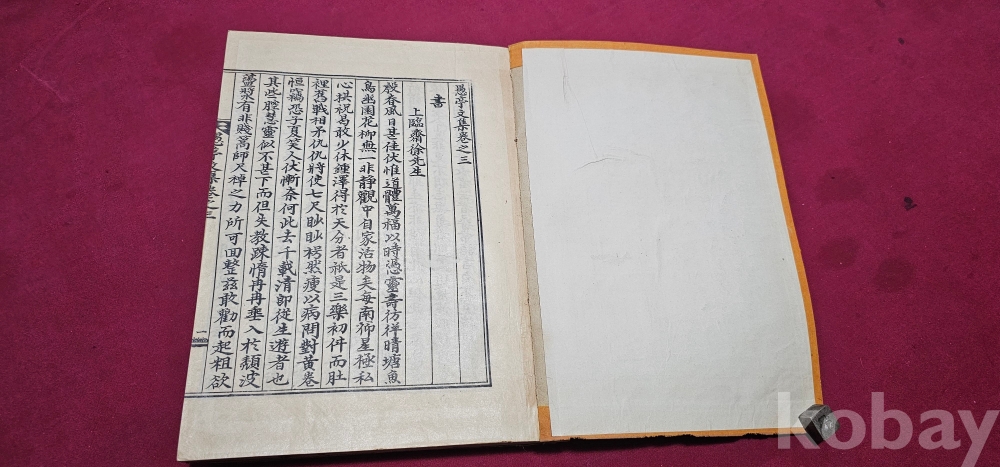 愚亭文集卷之三
書
上臨齋徐先生
殷春風日甚佳伏惟道體萬福以時憑靈壽彷徉晴塘魚
鳥幽園花柳無一非靜觀中自家活物矣每南仰星極私
心拱祝曷敢少休鍾澤得於天分者祇是三樂初件而肚
裡舊戰相矛仇仇將使七尺眇眇枵然瘦以病問對黃卷
恒竊恐子頁笑人伏慚奈何此去千載清卽從生遊者也
其些膝慧靈似不甚下而但失教疎惰冉冉垂入於頹波
蘯槳有非賤篙師尺棹之力所可回整玆敢勸而起粗欲
愚亭文集卷之三
一
kobay